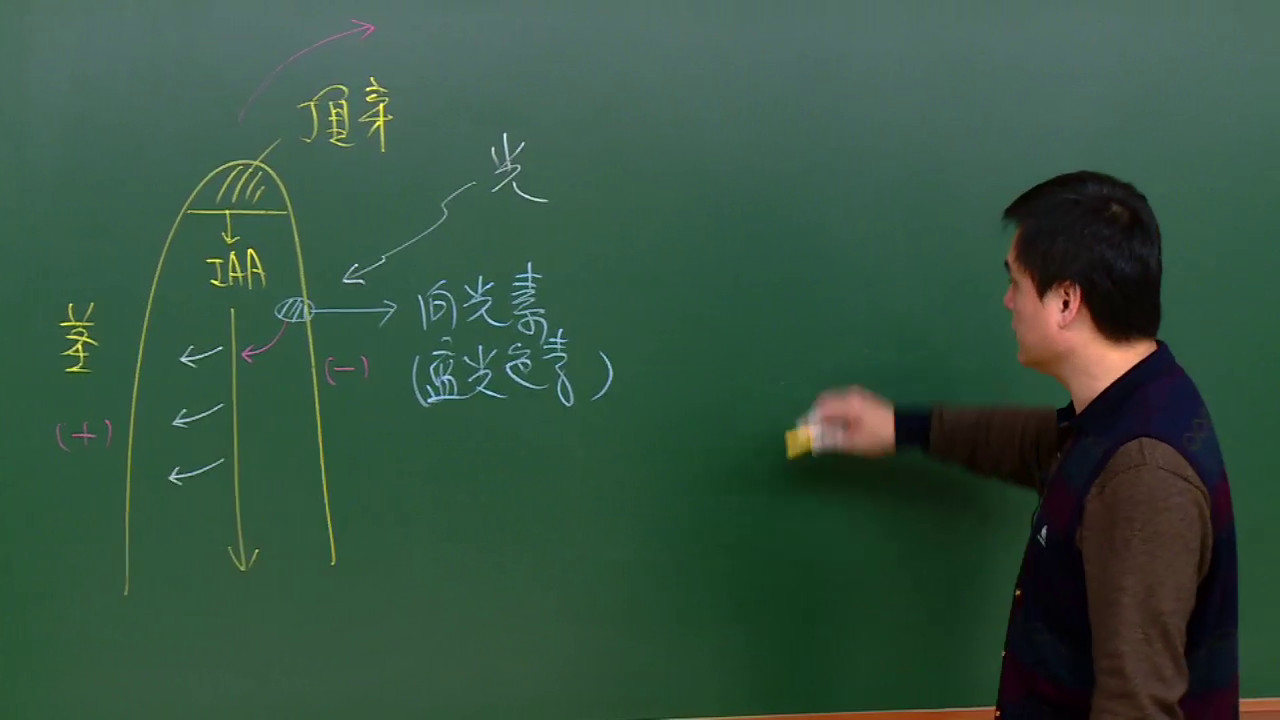 頂芽
光
IAA
向光素
(藍光色素)
莖
(-)
(+)